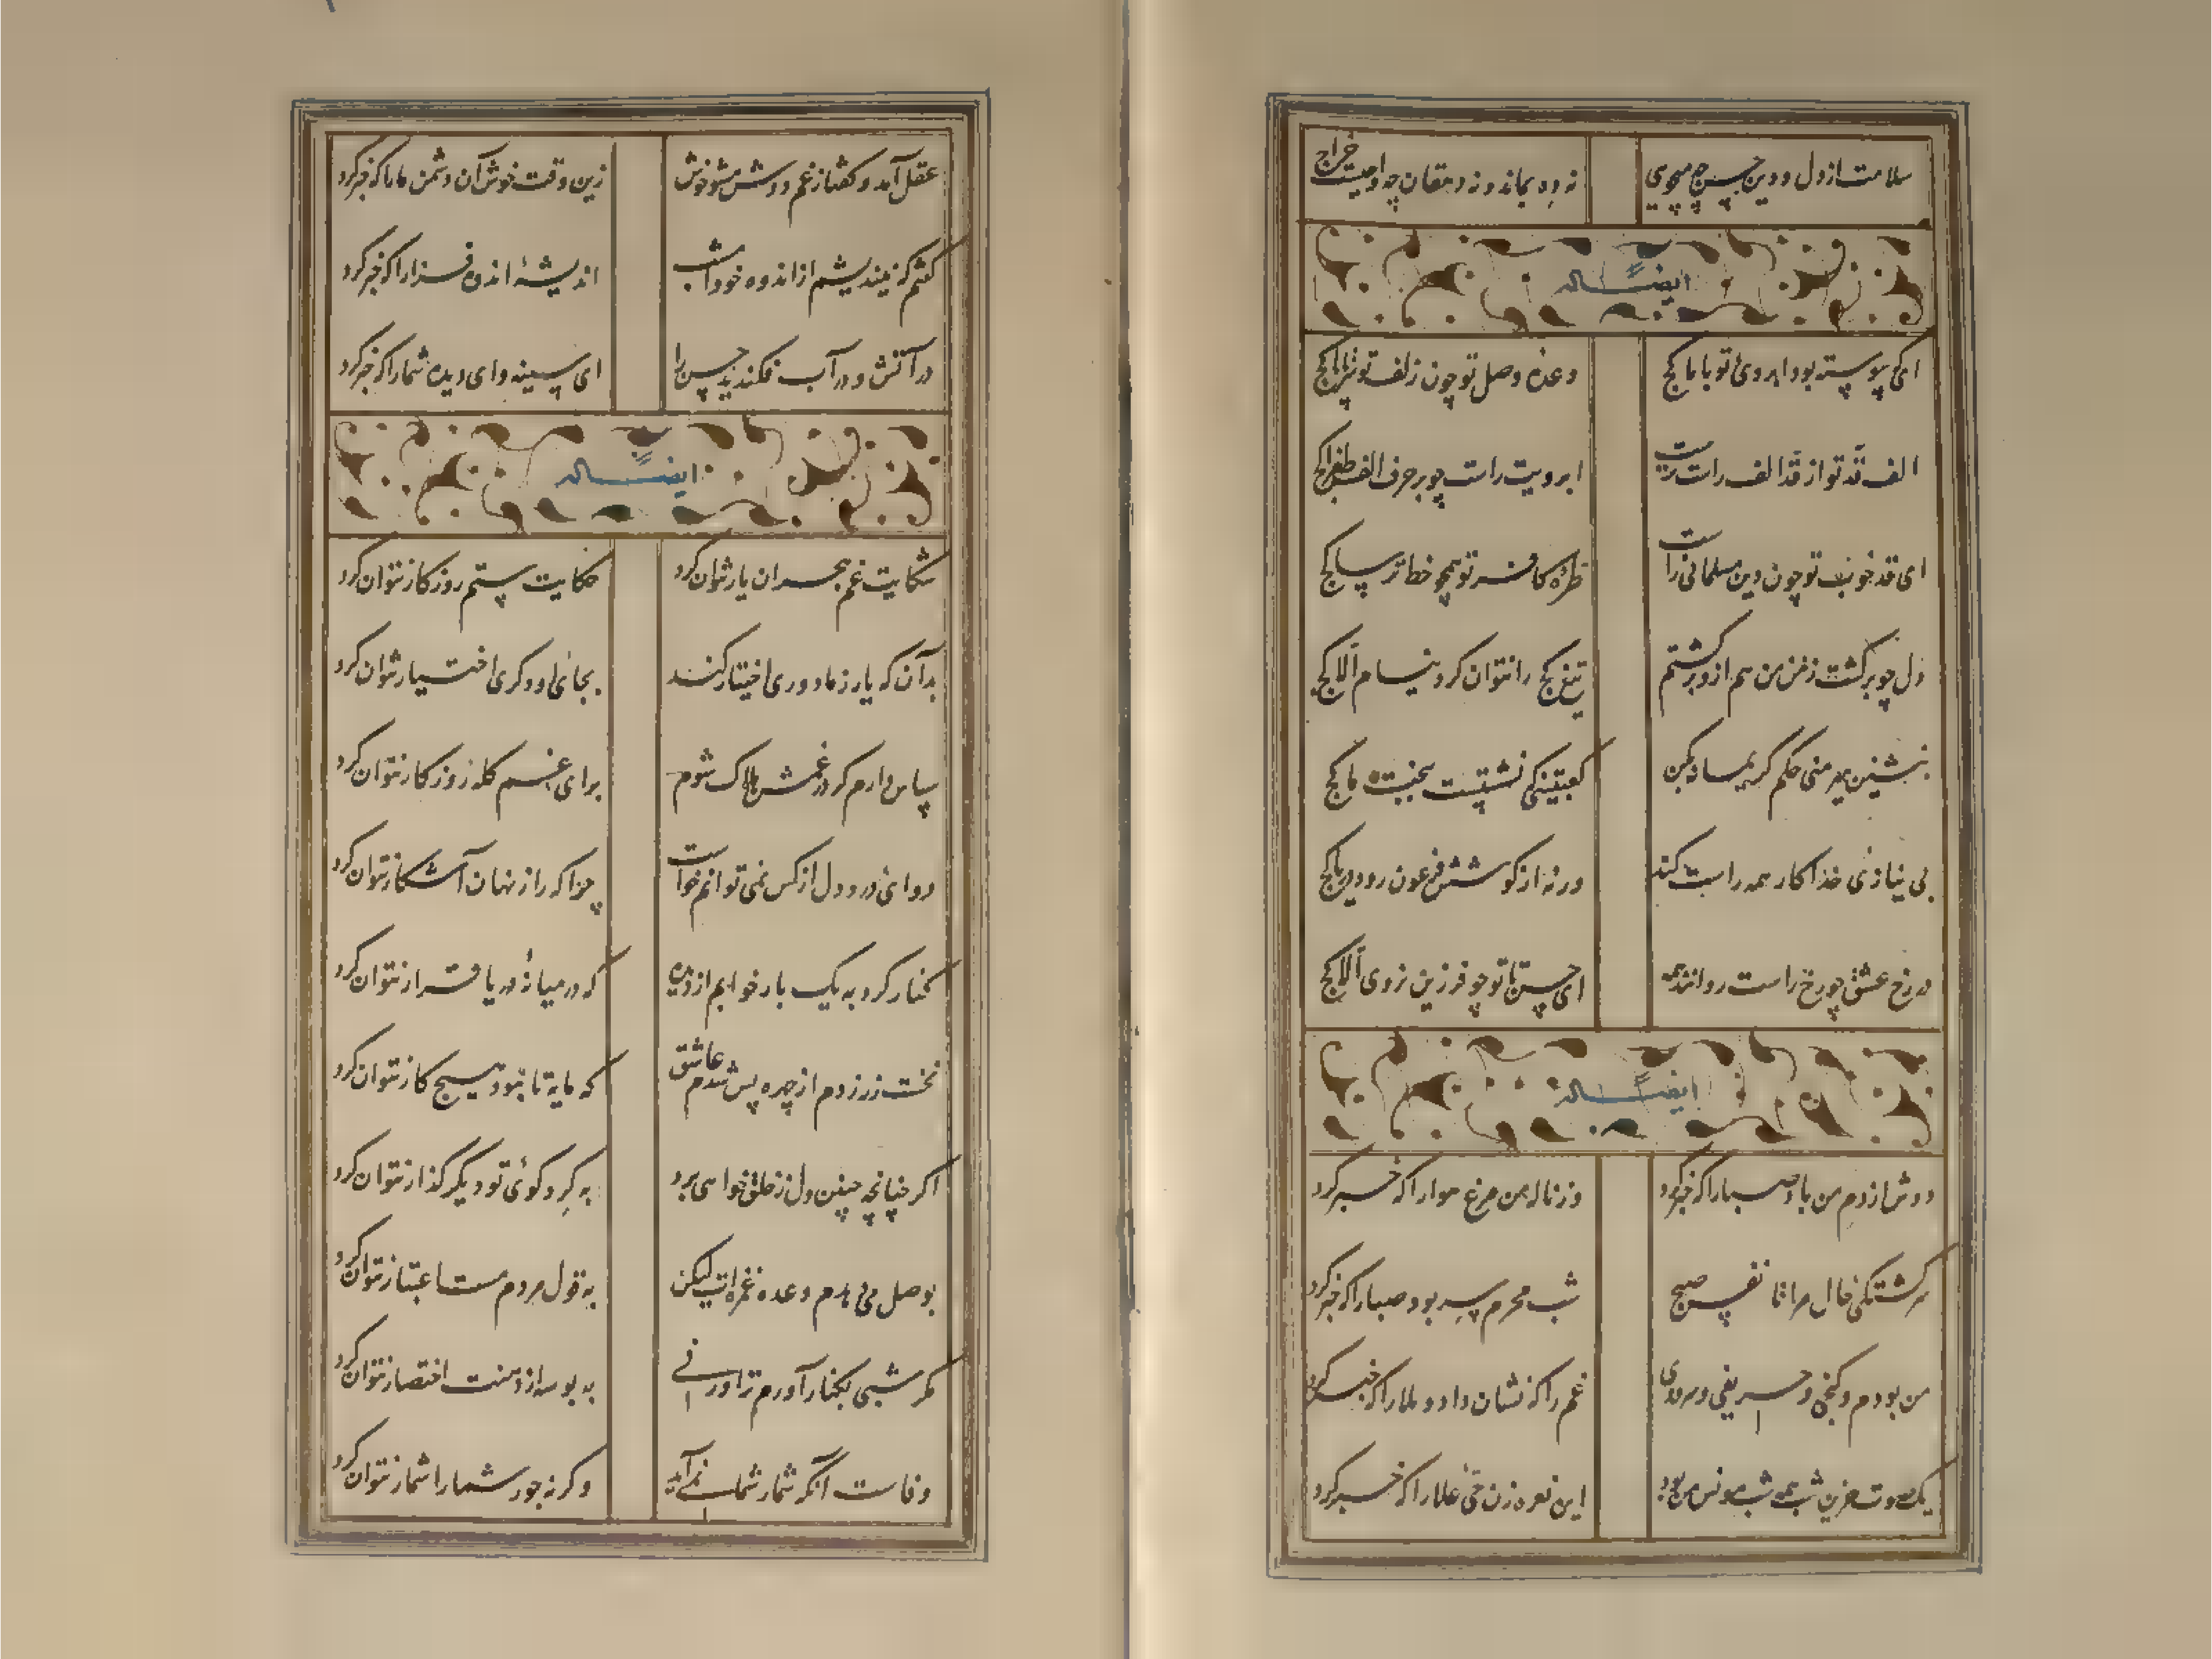 سلامت از دل و دین حسن چه میجویی
نه ده بماند و نه دهقان چه واجبست خراج
ایضاً له
ای که پیوسته بود ابروی تو با ما کج
وعده وصل تو چون زلف تو سر تا پا کج
الف قد تو از قد الف راست ترست
ابرویت راست چو بر حرف الف طغرا کج
ای قد خوب تو چون دین مسلمانی راست
طره کافر تو همچو خط ترسا کج
دل چو برگشت ز من من هم ازو برگشتم
تیغ کج را نتوان کرد نیام الا کج
بنشین مهر منی حکم کن
کج
بی نیازی خدا کار همه راست کند
ورنه از کوشش فرعون رود دریا کج
در رخ عشق چو رخ راست روانند همه
ای حسن تا تو چو فرزین نروی الا کج
ایضاً له
دوش از دم من باد صبا را که خبر کرد
وز ناله من مرغ هوا را که خبر کرد
سرگشتگی حال مرا تا نفس صبح
شب محرم سر بود صبا را که خبر کرد
من بودم و کنجی و حریفی و سرودی
غم را که نشان داد و بلا را که خبر کرد
یک صوت حزین شب همه شب مونس من بود
این نعره زن حی علا را که خبر کرد
عقل آمد و گفتا ز غم دوش مشو خوش
زین وقت خوش آن دشمن ما را که خبر کرد
گفتم که نیندیشم از اندوه خود امشب
اندیشهٔ اندوه فزا را که خبر کرد
در آتش و در آب فکندند حسن را
ای سینه و ای دیده شما را که خبر کرد
ایضاً له
شکایت غم هجران یار نتوان کرد
حکایت ستم روزگار نتوان کرد
بدآن که یار ز ما دوری اختیار کند
بجای او دگری اختیار نتوان کرد
سپاس دارم گر در غمش هلاک شوم
برای غم گله ز روزگار نتوان کرد
دوای درد دل از کس نمی توانم خواست
چرا که راز نهان آشکار نتوان کرد
کنار کرد به یک بار خوابم از دیده
که در میانهٔ دریا قرار نتوان کرد
نخست زر زدم از چهره پس شدم عاشق
که مایه تا نبود هیچ کار نتوان کرد
اگر چنانچه چنین دل ز خلق خواهی برد
به گرد کوی تو دیگر گذار نتوان کرد
بوصل می دهدم وعده غمزه ات لیکن
به قول مردم مست اعتبار نتوان کرد
گر شبی بکنار آورم ترا ورنی
به بوسه از دهنت اختصار نتوان کرد
وفاست آنکه شمار شما نمی آید
وگرنه جور شما را شمار نتوان کرد